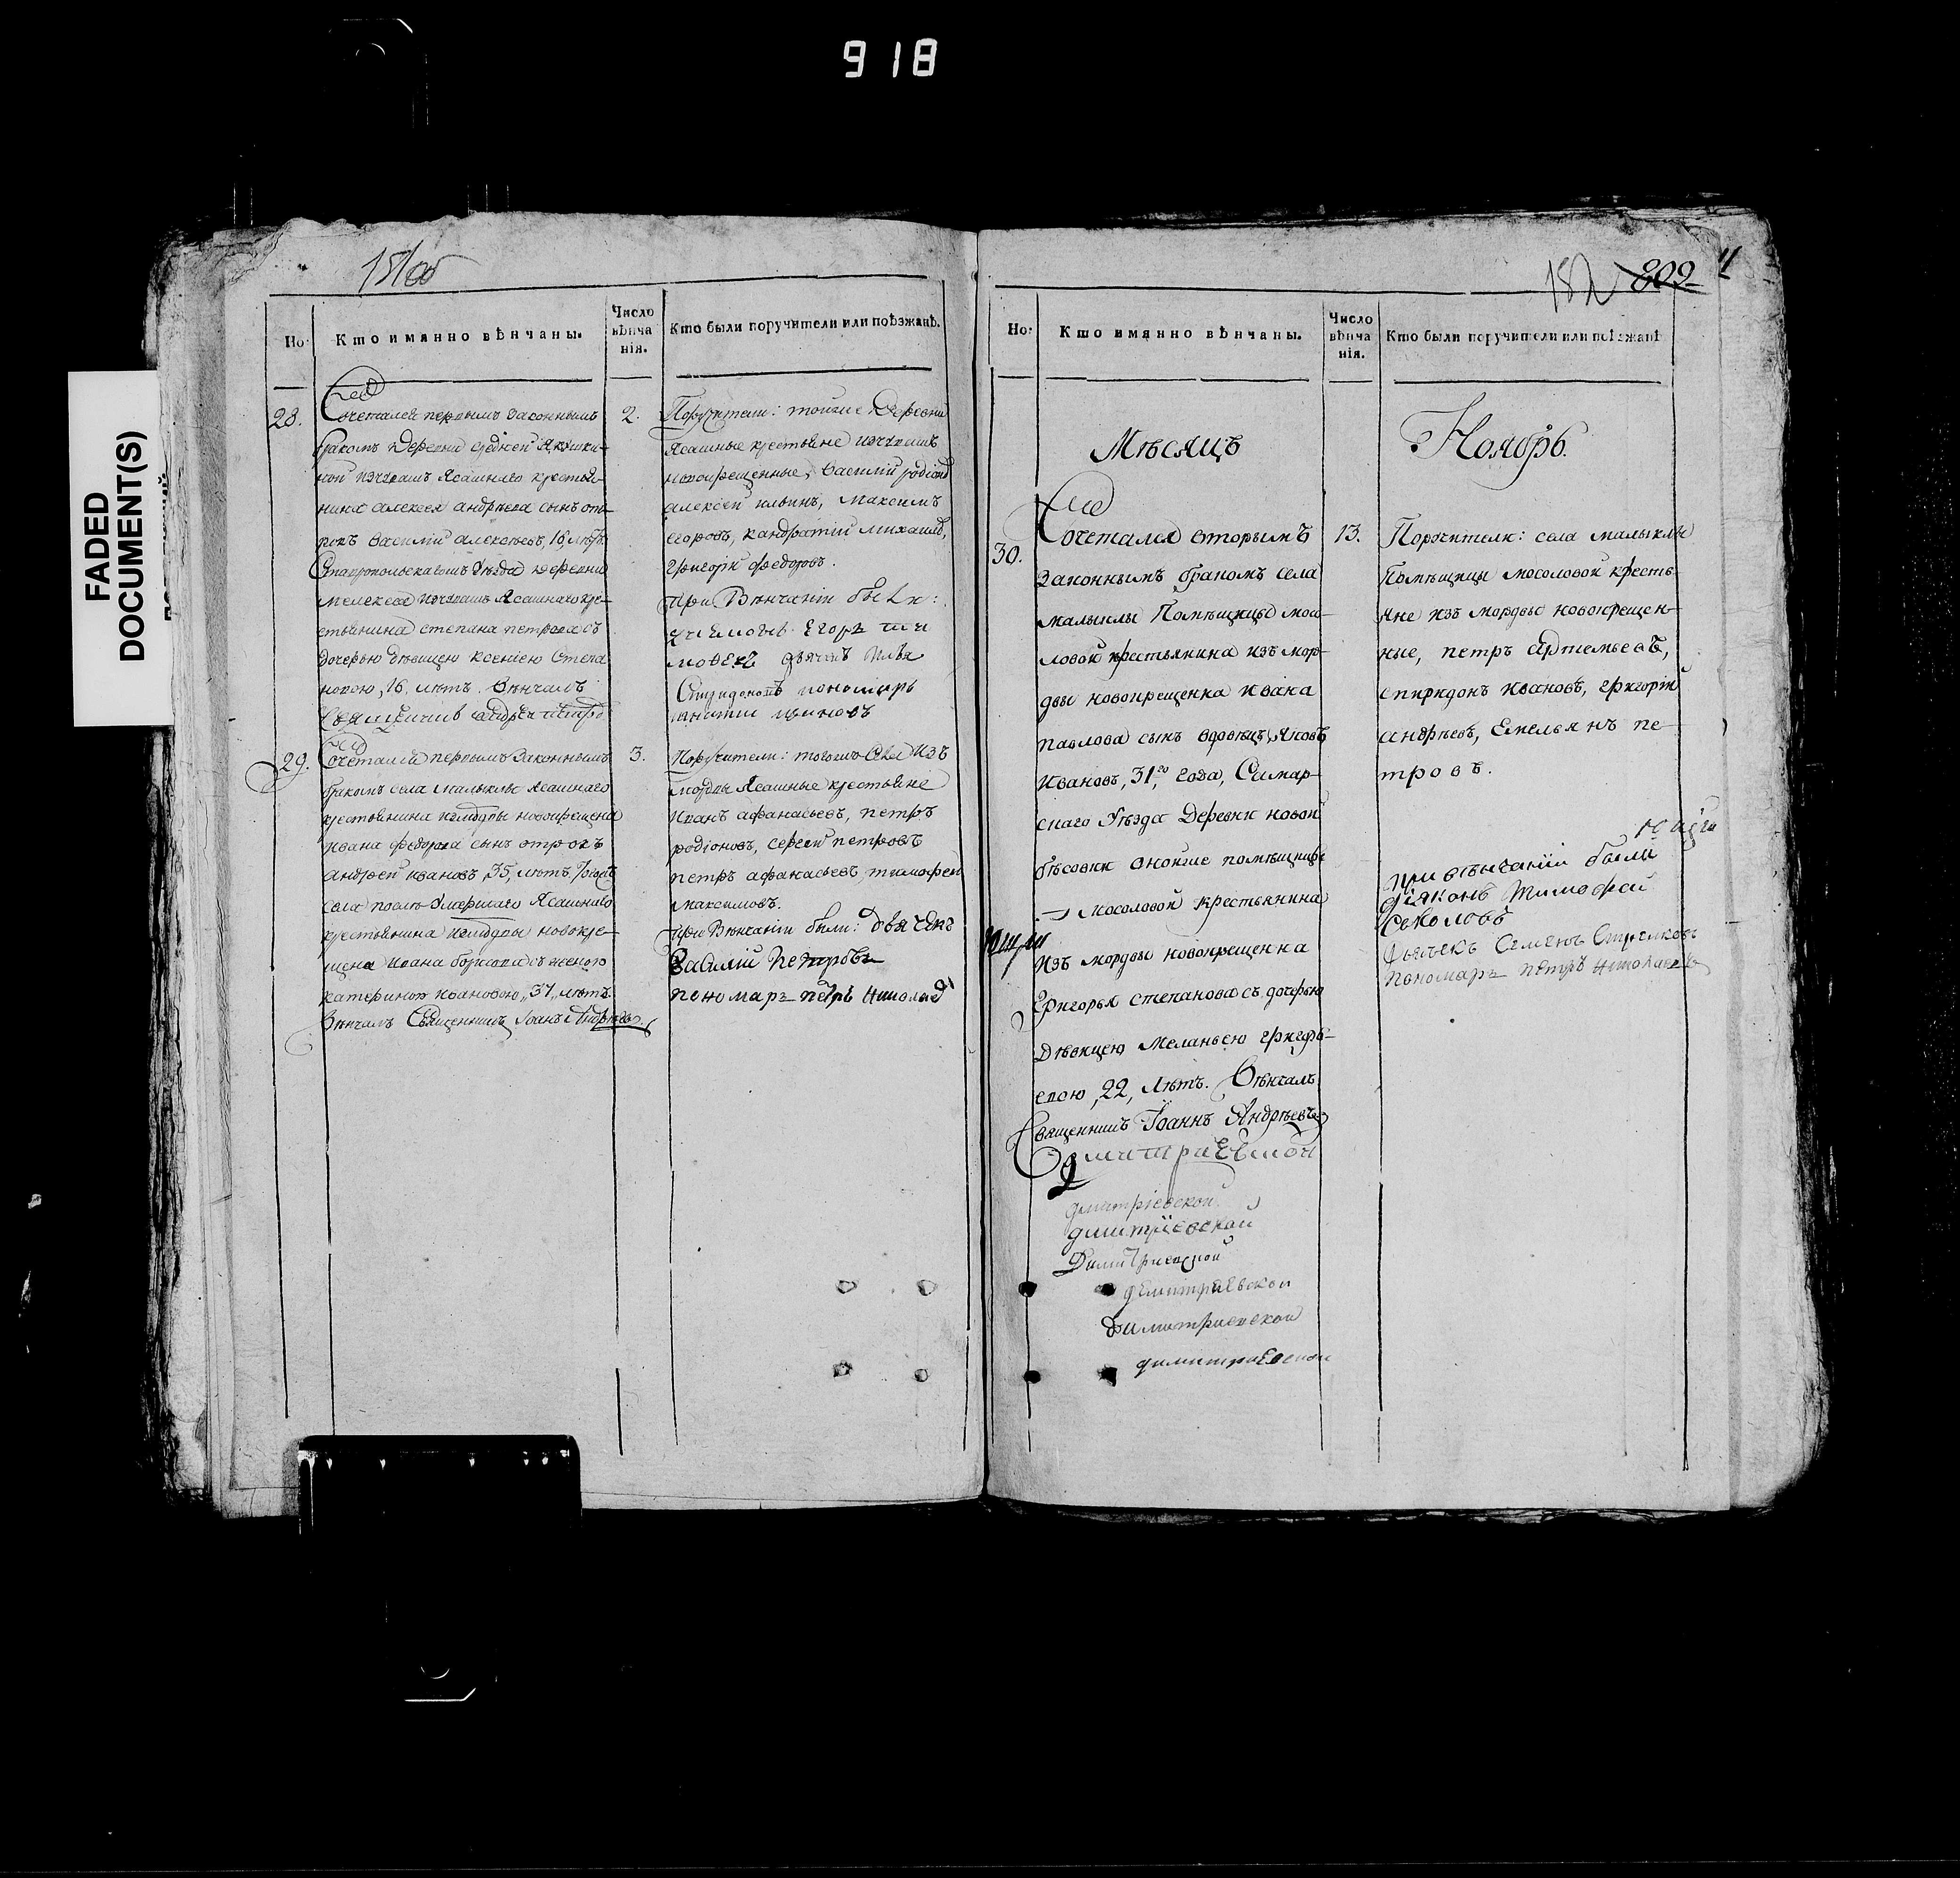 918
FADED
DOCUMENT(S)
151об
Но.
Кто имянно вѣнчаны.
Число
вѣнча
нія.
Кто были поручители или поѣзжанѣ.
28.
Сочетался первымъ законнымъ
бракомъ деревни средней Якушки-
ной изчувашъ Ясашнаго крестья-
нина алексея андрѣева сынъ от-
рокъ василій алексѣевъ, 16, лѣтъ.
Ставропольскагошъ Уѣзда деревни
мелекеса изчувашъ Ясашнаго кре-
стьянина степана петрова съ
дочерью дѣвицею ксеніею степа
новою, 16, лѣтъ. Вѣнчалъ
2.
Поручители: тойже Деревни
Ясашные крестьяне изчувашъ
новокрещенные, василій родіоновъ
алексей ильинъ, максимъ
егоровъ, кандратій михайловъ,
григорій федоровъ.
При Вѣнчаніи были:
29.
Сочетался первымъ Законнымъ
бракомъ села малыклы Ясашнаго
крестьянина измордвы новокрещена
ивана федорова сынъ отрокъ
андрей ивановъ, 35, лѣтъ,
села послѣ Умершаго Ясашнаго
крестьянина измордвы новокре-
щена ивана борисова съ женою
катериною ивановою, 37, лѣтъ.
Вѣнчалъ Священникъ Іоанъ Андрѣевъ
3.
Поручители: тогошъ Села Изъ
мордвы Ясашные крестьяне
Иванъ афанасьевъ, петръ
родіоновъ, сергей петровъ
петръ афанасьевъ, тимофей
максимовъ.
при Вѣнчаніи были: дьячекъ
Василій Петровъ
пономарь петръ николаевъ
152 809
Но.
Кто имянно вѣнчаны.
Число
вѣнча
нія.
Кто были поручители или поѣзжанѣ
Мѣсяцъ
Ноябрь.
30.
Сочетался вторымъ
Законнымъ бракомъ села
малыклы Помѣщицы мосо-
ловой крестьянина изъ мор-
двы новокрещенка ивана
павлова сынъ вдовецъ, Яковъ
Ивановъ, 31го года, Самар-
скаго Уѣзда Деревни новой
бѣсовки оной же помѣщицы
мосоловой крестьянина
Изъ мордвы новокрещенна
Григорья степанова съ дочерью
Дѣвицею меланьею григорь-
евою, 22, лѣтъ. Вѣнчалъ
Священникъ Іоаннъ Андрѣевъ
13.
Поручители: села малыклы
Помѣщицы мосоловой кресть-
яне изъ мордвы новокрещен-
ные, петръ Артемьевъ,
спиридонъ ивановъ, григорій
андрѣевъ, Емельянъ пе-
тровъ.
при вѣнчаніи были
діяконъ Тимофей
Соколовъ
дьячекъ Семенъ Стрелковъ
пономарь петръ николаевъ
дмитриевской
дмитріевской
димитріевской
Димитриевской
демитриевской
димитриевской
димитриевской